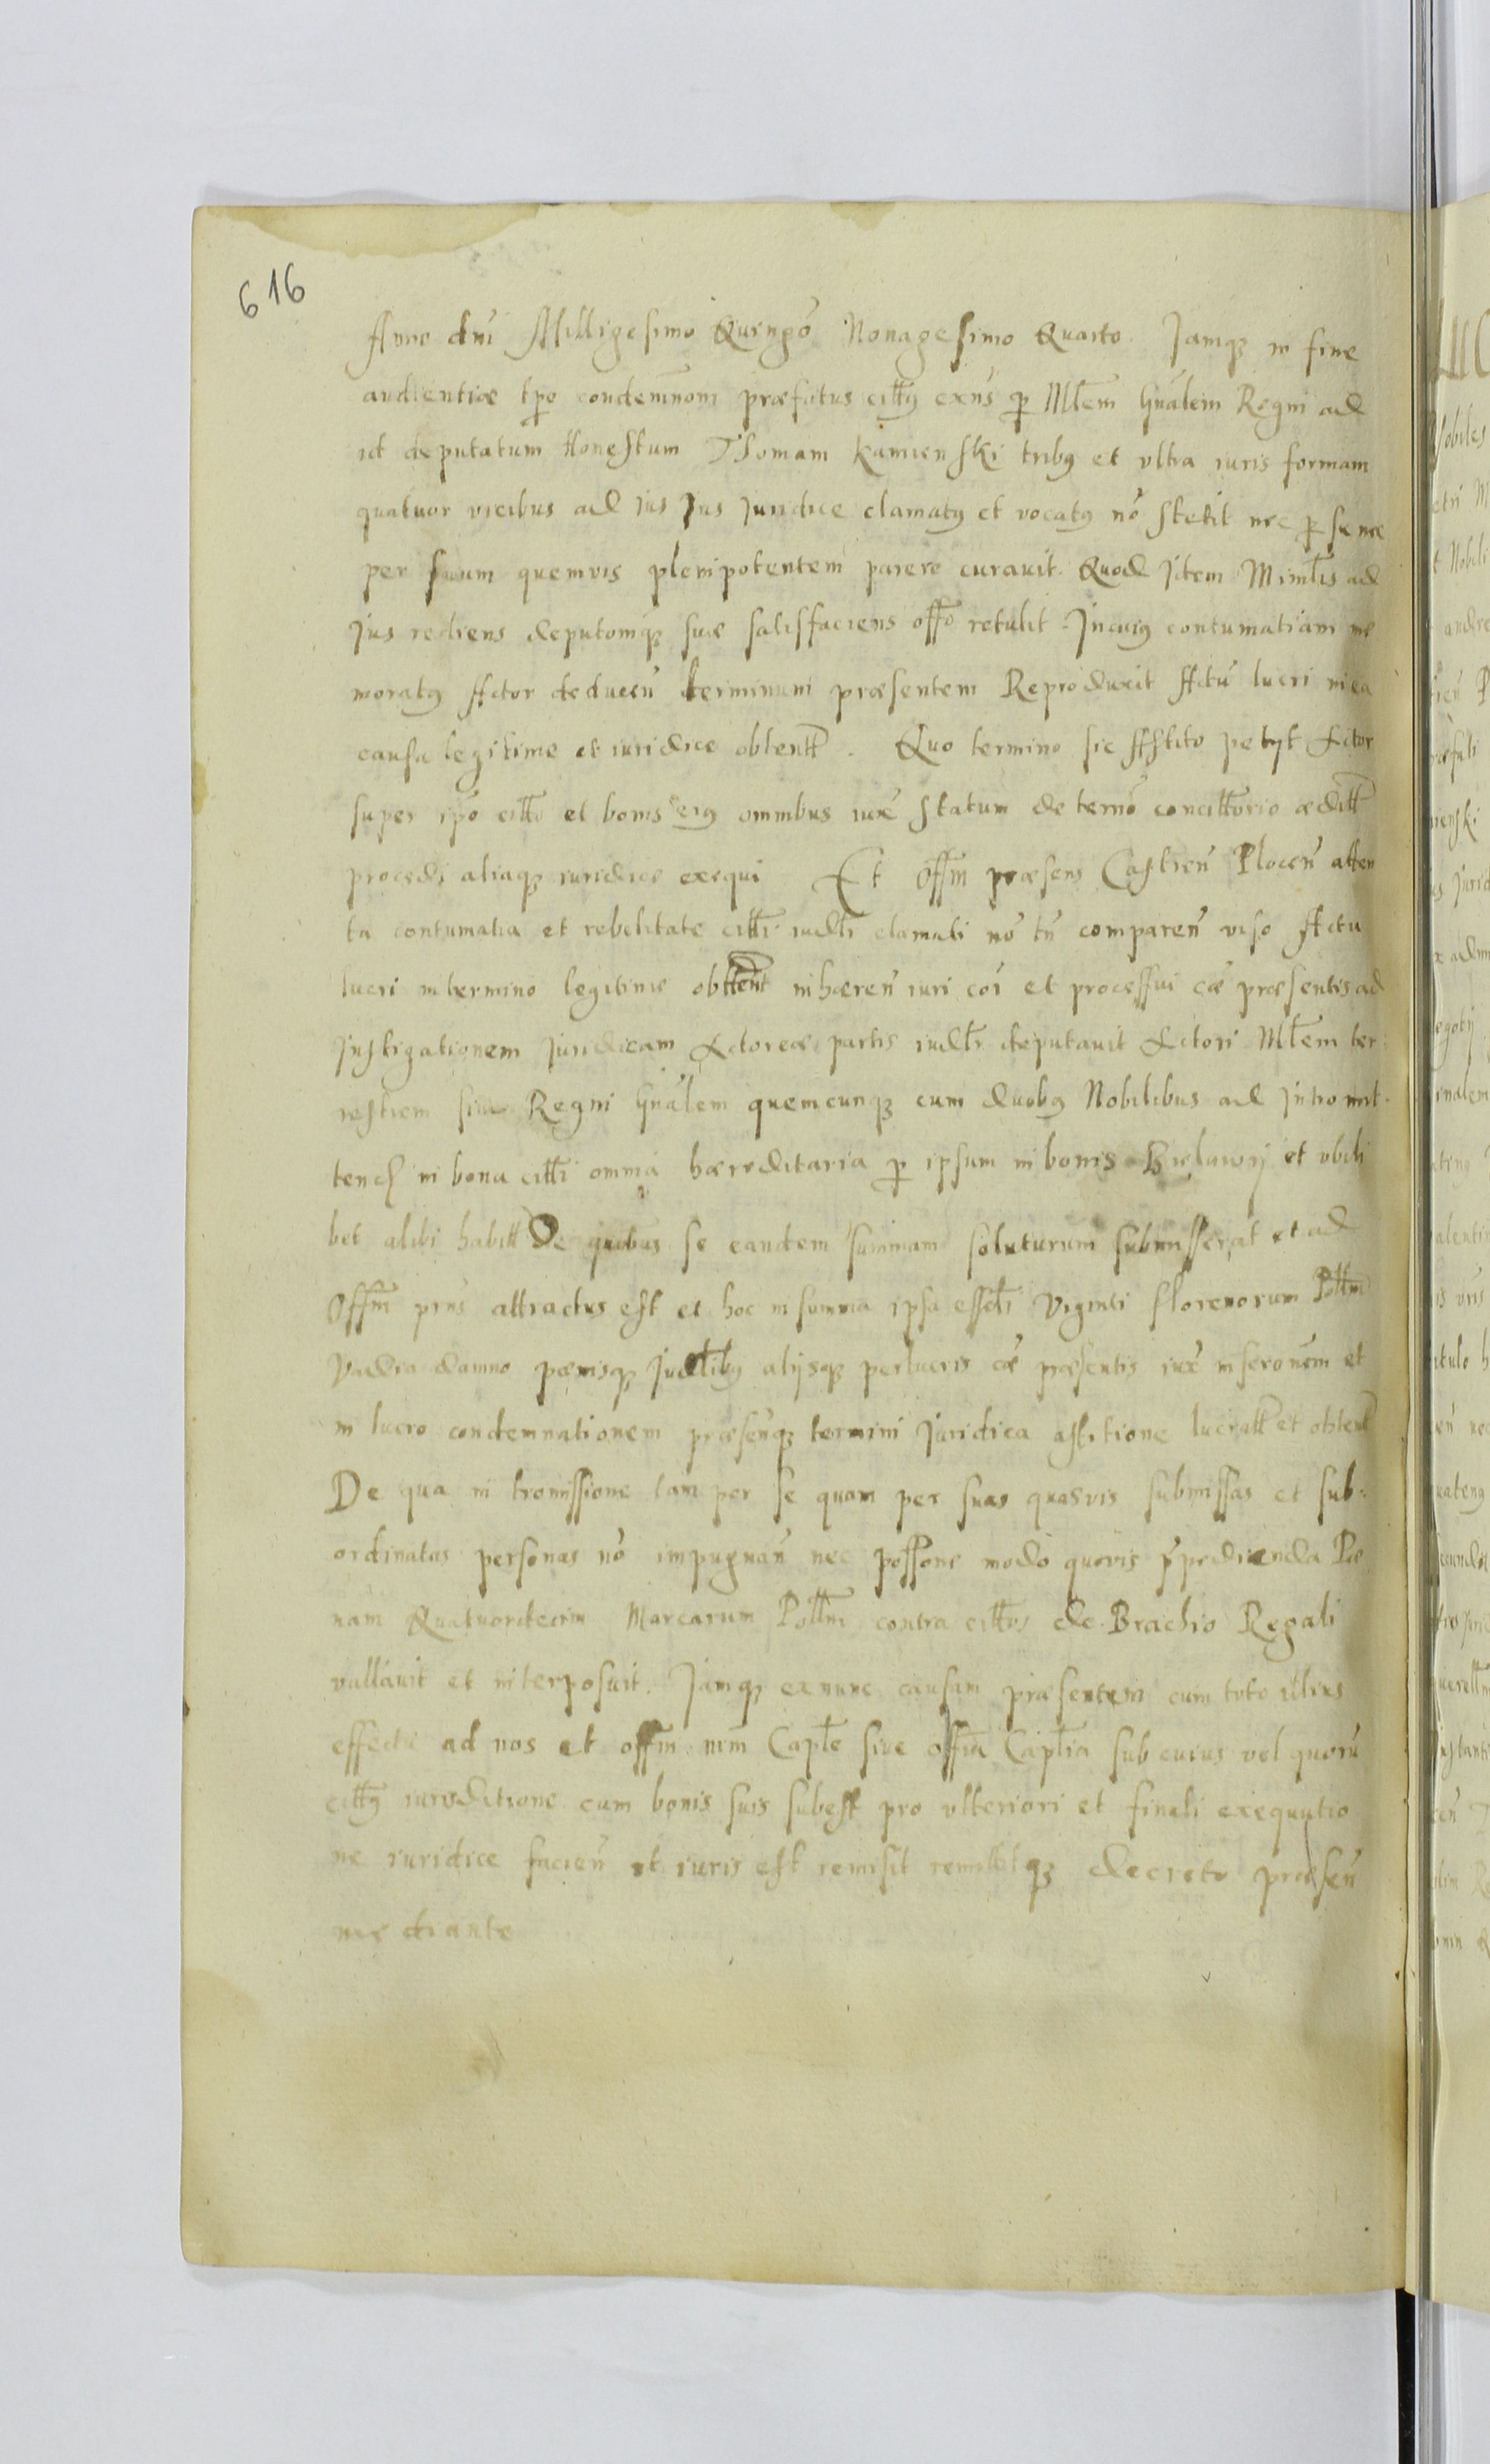 616
Anno dni Milligesimo Quingō Nonagesimo Quarto. Jamqz in fine
audientiæ tpe condemnom præfatus citt9 exns p Mlem Gnalem Regni ad
id deputatum Honestum Thomam Kamienski trib9 et vltra iuris formam
quatuor vicibus ad ius Jus Juridice clamat9 et vocat9 nō stetit nec p se nec
per suum quemvis plenipotentem parere curauit. Quod Jtem Minlis ad
Jus rediens deputomqz suæ satisfaciens offō retulit. Jn cui9 contumatiam me
morat9 Actor deducen terminum præsentem Reproduxit Actū lucri in ea
causa legitime et iuridice obtentt. Quo termino sic Astito petyt Actor
super ipō citto et bonis ei9 omnibus iuxē statum de ternō concittorio æditt
procedi aliaqz iuridice exequi Et Offm præsens Castren Plocen atten
ta contumatia et rebelitate citti iudlr clamati nō tn comparen viso Actu
lucri in termino legitime obttent inhæren iuri coi et processui cæ præsentis ad
Jnstigationem Juridicam Actoreæ partis iudlr deputauit Actori Mlem ter
restrem siue Regni Gnalem quemcunqz cum duob9 Nobilibus ad Jntromit
tend in bona citti omnia hæreditaria p ipsum in bonis Bielawy et vbili
bet alibi habitt De quibus se eandem summam soluturum submisserat et ad
Offm prius attractus est et hoc in summa ipsa essdi Viginti florenorum Polllm
Vadia damno pænisqz Judlib9 alijsqz perlucris cæ præsentis iuxē inseronem et
in lucro condemnationem præsenqz termini Juridica astitione lucratt et obtent
De qua in tromissione tam per se quam per suas quasvis submissas et sub
ordinatas personas nō impugnan nec possone modo quovis pēpedienda Pæ
nam Quatuordecim Marcarum Polllm contra cittos de Brachio Regali
vallauit et interposuit. Jamqz ex nunc causam præsentem cum toto
effectu ad nos et offm nrm Capte siue offia Captia sub cuius vel quorū
citt9 iurisditione cum bonis suis subest pro vlteriori et finali exequutio
ne iuridice facien vt iuris est remisit remittitqz decreto præsen
mediante